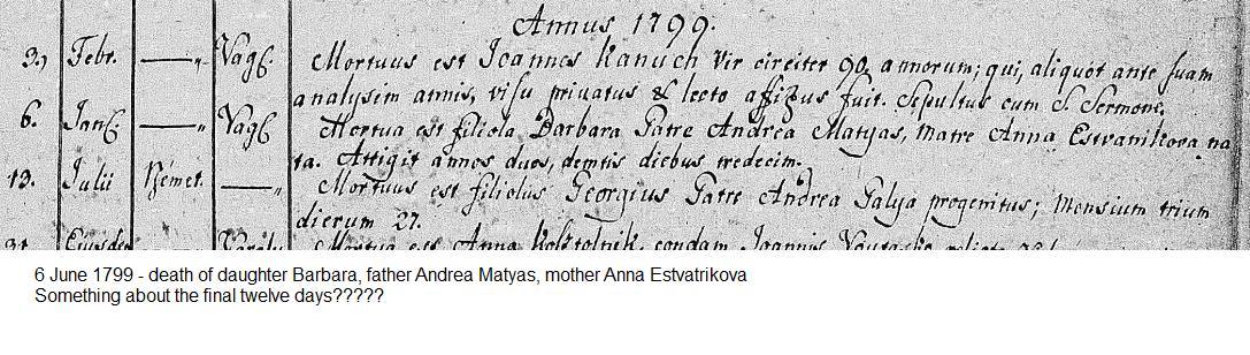 Annus 1799.
3., Febr. Vagß. Mortuus est Joannes Kanuch Vir circiter 90 annorum; qui, aliquót ante suam
analysim annis, visu privatus & lecto affixus fuit. Sepultus cum S. Sermone.
6. Janß. Vagß Mortua est filiola Barbara Patre Andrea Matyas, matre Anna na
ta. Attigit annos duos, demtis diebus tredecim.
13. Julii Német. Mortuus est filiolus Georgius Patre Andrea Palya progenitus; Mensium trium
dierum 27.
Mortua est Anna condam Joannis
6 June 1799 - death of daughter Barbara, father Andrea Matyas, mother Anna Estvatrikova
Something about the final twelve days?????